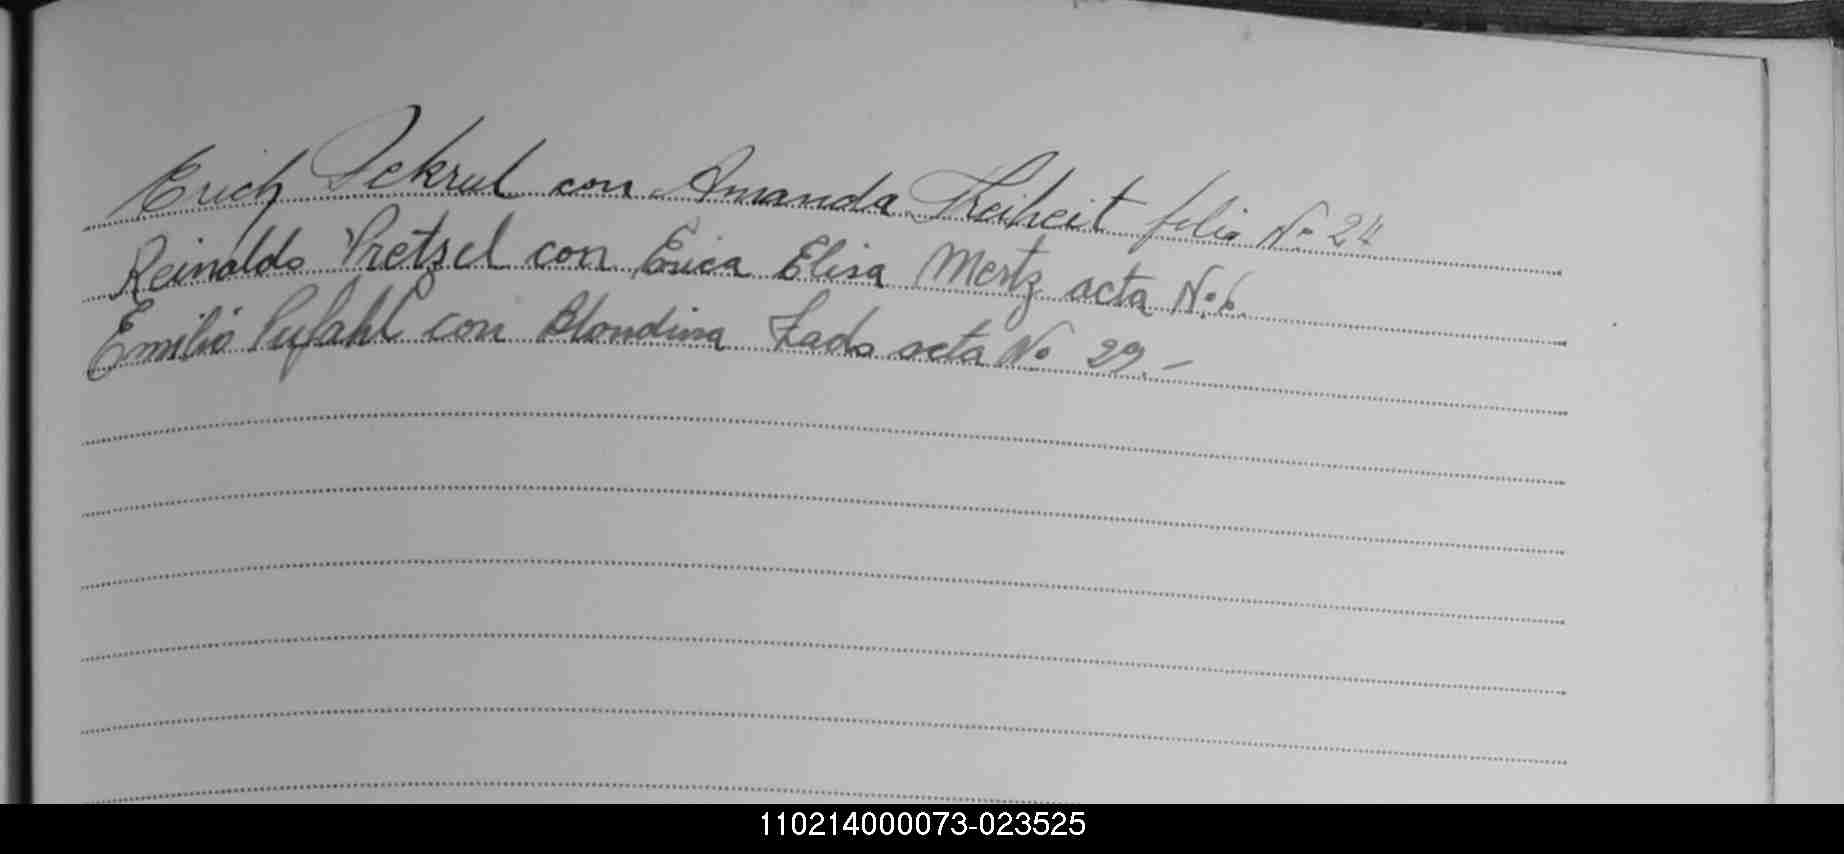 Erich Pekrul con Amanda Freiheit folio No 24
Reinaldo Pretzel con Erica Elisa Mertz acta No 6.
Emilio Pufahl con Blondina Lado acta No 29.-
110214000073-023525